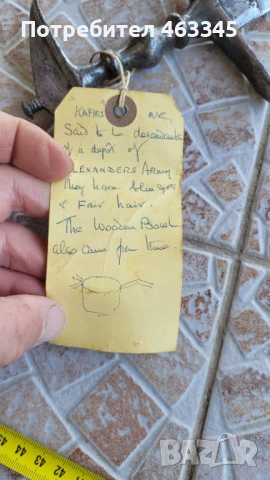 Потребител 463345
KAFIRS are
Said to be descendents
of a depot of
ALEXANDERS ARMY
They have blue eyes
& Fair hair.
The Wooden Bowl
also came from there.
BAZAR
42 43 44 45 46 47